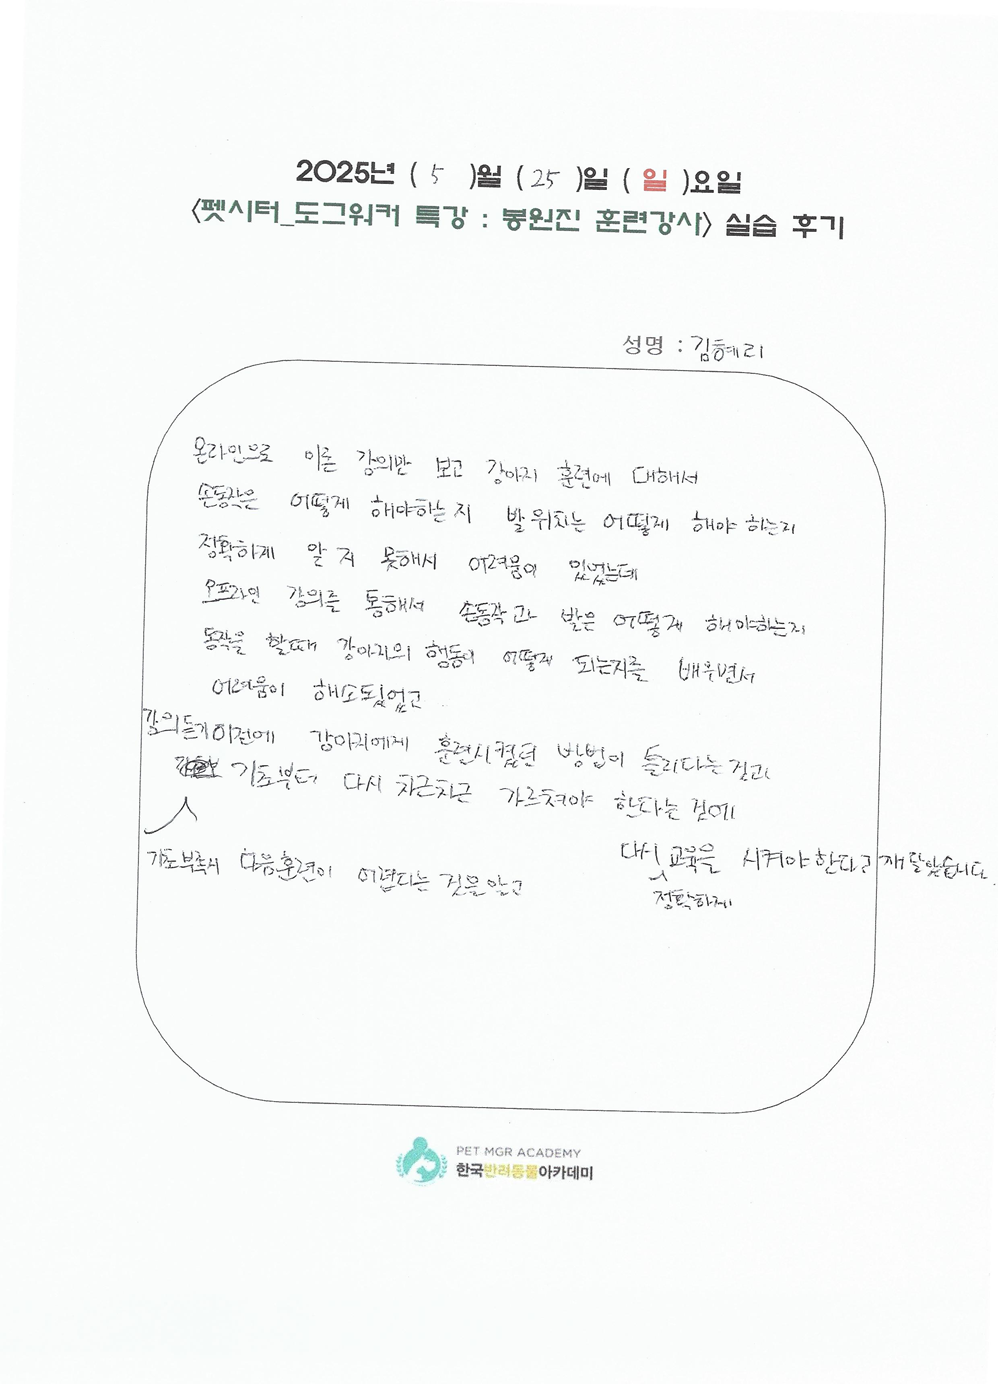 2025년 ( 5 )월 ( 25 )일 ( 일 )요일
<펫시터_도그워커 특강 : 봉원진 훈련강사> 실습 후기
성명 : 김혜리
온라인으로 이론 강의만 보고 강아지 훈련에 대해서
손동작은 어떻게 해야하는지 발위치는 어떻게 해야 하는지
정확하게 알 지 못해서 어려움이 있었는데
오프라인 강의를 통해서 손동작과 발은 어떻게 해야하는지
동작을 할때 강아지의 행동이 어떻게 되는지를 배우면서
어려움이 해소되었고
강의듣기이전에 강아지에게 훈련시켰던 방법이 틀리다는 점과
기초부터 다시 차근차근 가르쳐야 한다는 점에
기초부족시 다음훈련이 어렵다는 것을 알고
다시 교육을 시켜야한다고 깨달았습니다.
정확하게
PET MGR ACADEMY
한국반려동물아카데미